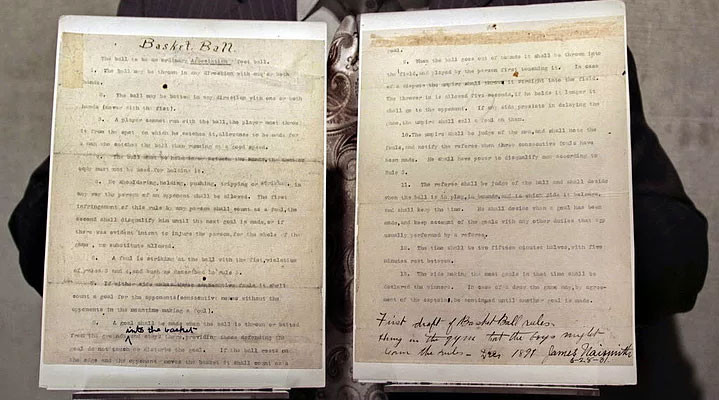 Basket Ball.
The ball to be an ordinary Association foot ball.
1. The ball may be thrown in any direction with one or both
hands.
2. The ball may be batted in any direction with one or both
hands (never with the fist).
3. A player cannot run with the ball, the player must throw
it from the spot on which he catches it, allowance to be made for
a man who catches the ball when running at a good speed.
4. The ball must be held in or between the hands, the
must not be used for holding it.
5. No shouldering, holding, pushing, tripping or striking, in
any way the person of an opponent shall be allowed. The first
infringement of this rule by any person shall count as a foul, the
second shall disqualify him until the next goal is made, or if
there was evident intent to injure the person, for the whole of the
game, no substitute allowed.
6. A foul is striking at the ball with the fist, violation
of rules 3 and 4, and such as described in rule 5.
7. If either side makes three consecutive fouls it shall
count a goal for the opponents (consecutive means without the
opponents in the meantime making a foul).
8. A goal shall be made when the ball is thrown or batted
into the basket
from the grounds and stays there, providing those defending the
goal do not touch or disturb the goal. If the ball rests on
the edge and the opponent moves the basket it shall count as a
goal.
9. When the ball goes out of bounds it shall be thrown into
the field, and played by the person first touching it. In case
of a dispute the umpire shall throw it straight into the field.
The thrower in is allowed five seconds, if he holds it longer it
shall go to the opponent. If any side presists in delaying the
game, the umpire shall call a foul on them.
10. The umpire shall be judge of the men, and shall note the
fouls, and notify the referee when three consecutive fouls have
been made. He shall have power to disqualify men according to
Rule 5.
11. The referee shall be judge of the ball and shall decide
when the ball is in play, in bounds, and to which side it belongs,
and shall keep the time. He shall decide when a goal has been
made, and keep account of the goals with any other duties that are
usually performed by a referee.
12. The time shall be two fifteen minutes halves, with five
minutes rest between.
13. The side making the most goals in that time shall be
declared the winners. In case of a draw the game may, by agree-
ment of the captains, be continued until another goal is made.
First draft of Basket Ball rules.
Hung in the gym that the boys might
learn the rules - Dec 1891 James Naismith
6-28-31